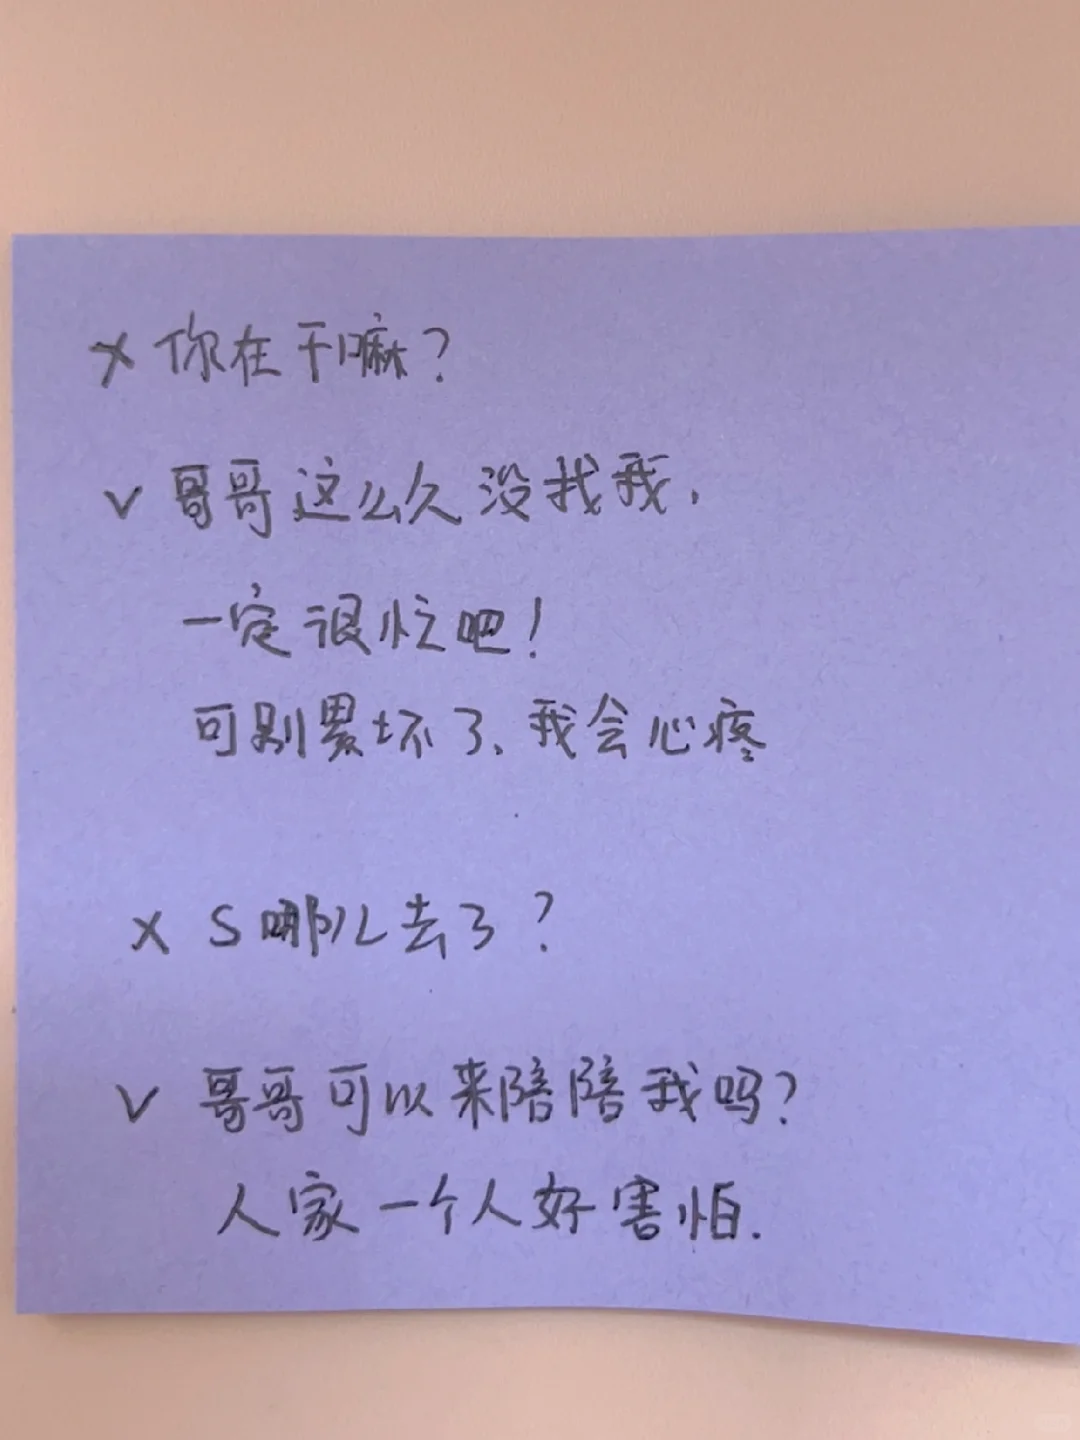 × 你在干嘛?
✓ 哥哥这么久没找我,
一定很忙吧!
可别累坏了、我会心疼
× S哪儿去了?
✓ 哥哥可以来陪陪我吗?
人家一个人好害怕.